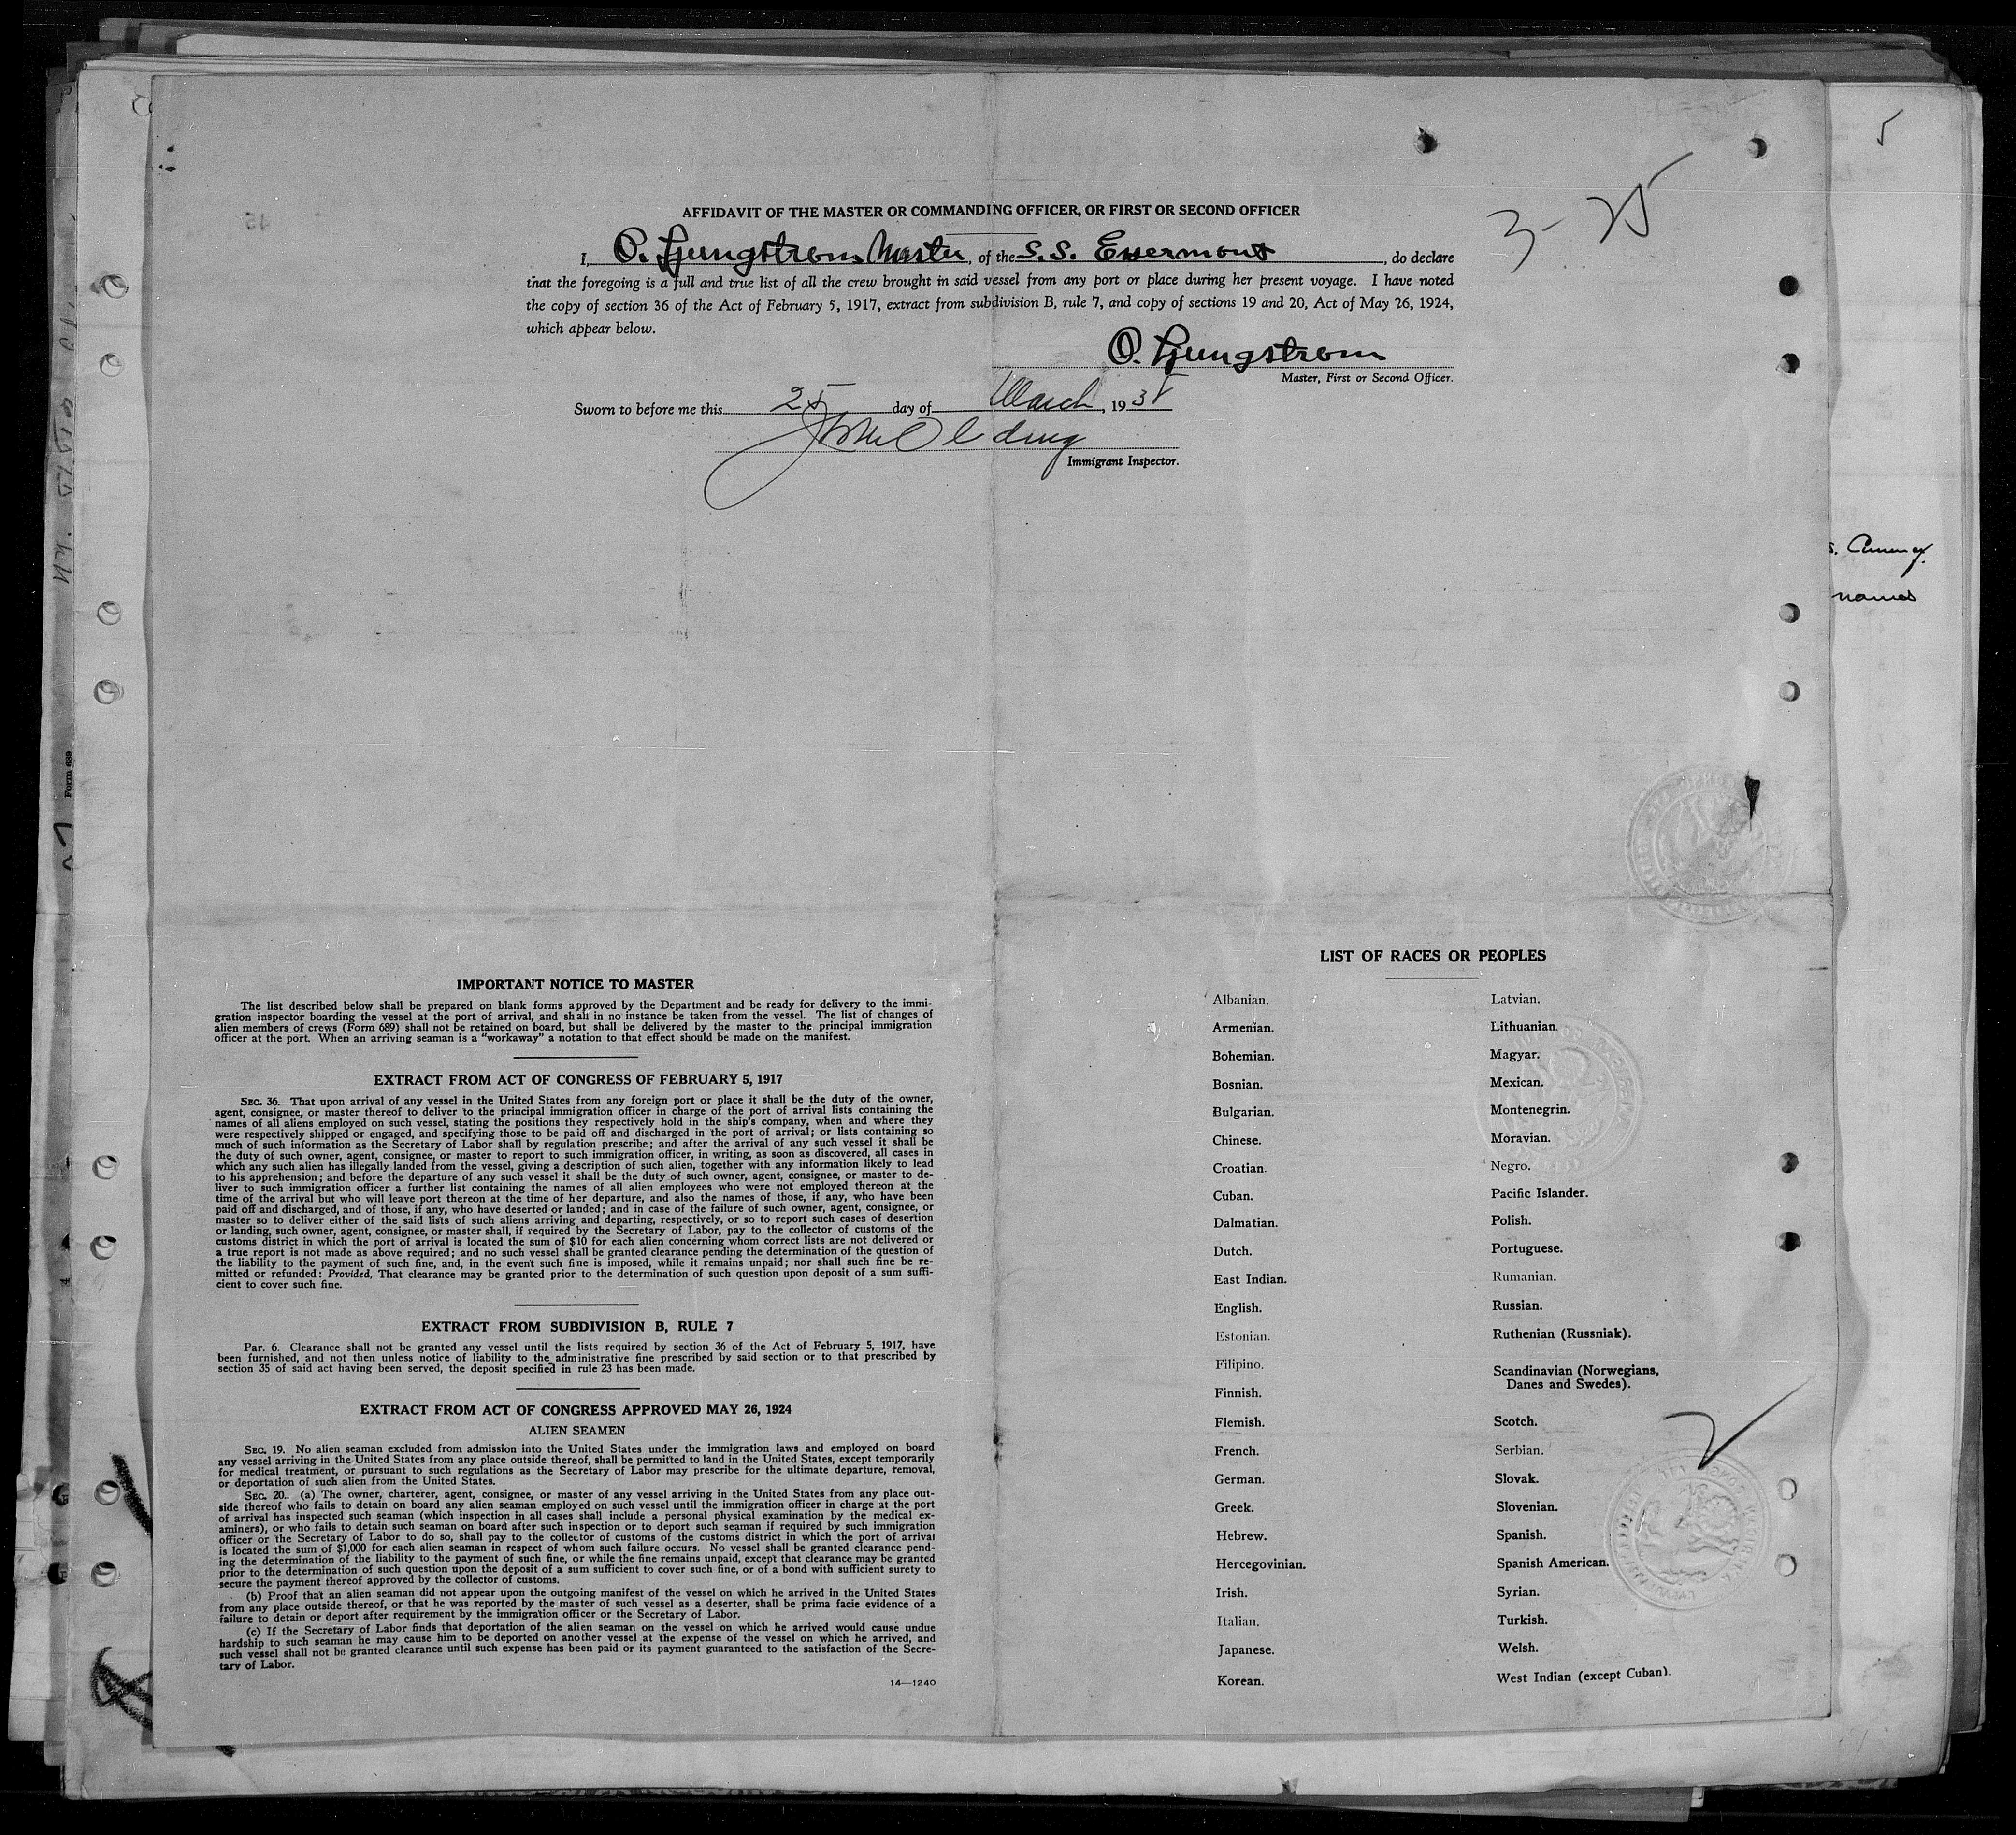 5
3-25
AFFIDAVIT OF THE MASTER OR COMMANDING OFFICER, OR FIRST OR SECOND OFFICER
I, O. Ljungstrom Master, of the S.S. Exermont, do declare
that the foregoing is a full and true list of all the crew brought in said vessel from any port or place during her present voyage. I have noted
the copy of section 36 of the Act of February 5, 1917, extract from subdivision B, rule 7, and copy of sections 19 and 20, Act of May 26, 1924,
which appear below.
O. Ljungstrom
Master, First or Second Officer.
Sworn to before me this 25 day of March, 1935
Immigrant Inspector.
names
Form 689
IMPORTANT NOTICE TO MASTER
The list described below shall be prepared on blank forms approved by the Department and be ready for delivery to the immi-
gration inspector boarding the vessel at the port of arrival, and shall in no instance be taken from the vessel. The list of changes of
alien members of crews (Form 689) shall not be retained on board, but shall be delivered by the master to the principal immigration
officer at the port. When an arriving seaman is a "workaway" a notation to that effect should be made on the manifest.
EXTRACT FROM ACT OF CONGRESS OF FEBRUARY 5, 1917
SEC. 36. That upon arrival of any vessel in the United States from any foreign port or place it shall be the duty of the owner,
agent, consignee, or master thereof to deliver to the principal immigration officer in charge of the port of arrival lists containing the
names of all aliens employed on such vessel, stating the positions they respectively hold in the ship's company, when and where they
were respectively shipped or engaged, and specifying those to be paid off and discharged in the port of arrival; or lists containing so
much of such information as the Secretary of Labor shall by regulation prescribe; and after the arrival of any such vessel it shall be
the duty of such owner, agent, consignee, or master to report to such immigration officer, in writing, as soon as discovered, all cases in
which any such alien has illegally landed from the vessel, giving a description of such alien, together with any information likely to lead
to his apprehension; and before the departure of any such vessel it shall be the duty of such owner, agent, consignee, or master to de-
liver to such immigration officer a further list containing the names of all alien employees who were not employed thereon at the
time of the arrival but who will leave port thereon at the time of her departure, and also the names of those, if any, who have been
paid off and discharged, and of those, if any, who have deserted or landed; and in case of the failure of such owner, agent, consignee, or
master so to deliver either of the said lists of such aliens arriving and departing, respectively, or so to report such cases of desertion
or landing, such owner, agent, consignee, or master shall, if required by the Secretary of Labor, pay to the collector of customs of the
customs district in which the port of arrival is located the sum of $10 for each alien concerning whom correct lists are not delivered or
a true report is not made as above required; and no such vessel shall be granted clearance pending the determination of the question of
the liability to the payment of such fine, and, in the event such fine is imposed, while it remains unpaid; nor shall such fine be re-
mitted or refunded: Provided, That clearance may be granted prior to the determination of such question upon deposit of a sum suffi-
cient to cover such fine.
EXTRACT FROM SUBDIVISION B, RULE 7
Par. 6. Clearance shall not be granted any vessel until the lists required by section 36 of the Act of February 5, 1917, have
been furnished, and not then unless notice of liability to the administrative fine prescribed by said section or to that prescribed by
section 35 of said act having been served, the deposit specified in rule 23 has been made.
EXTRACT FROM ACT OF CONGRESS APPROVED MAY 26, 1924
ALIEN SEAMEN
SEC. 19. No alien seaman excluded from admission into the United States under the immigration laws and employed on board
any vessel arriving in the United States from any place outside thereof, shall be permitted to land in the United States, except temporarily
for medical treatment, or pursuant to such regulations as the Secretary of Labor may prescribe for the ultimate departure, removal,
or deportation of such alien from the United States.
SEC. 20.. (a) The owner, charterer, agent, consignee, or master of any vessel arriving in the United States from any place out-
side thereof who fails to detain on board any alien seaman employed on such vessel until the immigration officer in charge at the port
of arrival has inspected such seaman (which inspection in all cases shall include a personal physical examination by the medical ex-
aminers), or who fails to detain such seaman on board after such inspection or to deport such seaman if required by such immigration
officer or the Secretary of Labor to do so, shall pay to the collector of customs of the customs district in which the port of arrival
is located the sum of $1,000 for each alien seaman in respect of whom such failure occurs. No vessel shall be granted clearance pend-
ing the determination of the liability to the payment of such fine, or while the fine remains unpaid, except that clearance may be granted
prior to the determination of such question upon the deposit of a sum sufficient to cover such fine, or of a bond with sufficient surety to
secure the payment thereof approved by the collector of customs.
(b) Proof that an alien seaman did not appear upon the outgoing manifest of the vessel on which he arrived in the United States
from any place outside thereof, or that he was reported by the master of such vessel as a deserter, shall be prima facie evidence of a
failure to detain or deport after requirement by the immigration officer or the Secretary of Labor.
(c) If the Secretary of Labor finds that deportation of the alien seaman on the vessel on which he arrived would cause undue
hardship to such seaman he may cause him to be deported on another vessel at the expense of the vessel on which he arrived, and
such vessel shall not be granted clearance until such expense has been paid or its payment guaranteed to the satisfaction of the Secre-
tary of Labor.
14—1240
LIST OF RACES OR PEOPLES
Albanian.
Armenian.
Bohemian.
Bosnian.
Bulgarian.
Chinese.
Croatian.
Cuban.
Dalmatian.
Dutch.
East Indian.
English.
Estonian.
Filipino.
Finnish.
Flemish.
French.
German.
Greek.
Hebrew.
Hercegovinian.
Irish.
Italian.
Japanese.
Korean.
Latvian.
Lithuanian
Magyar.
Mexican.
Montenegrin.
Moravian.
Negro.
Pacific Islander.
Polish.
Portuguese.
Rumanian.
Russian.
Ruthenian (Russniak).
Scandinavian (Norwegians,
Danes and Swedes).
Scotch.
Serbian.
Slovak.
Slovenian.
Spanish.
Spanish American.
Syrian.
Turkish.
Welsh.
West Indian (except Cuban).